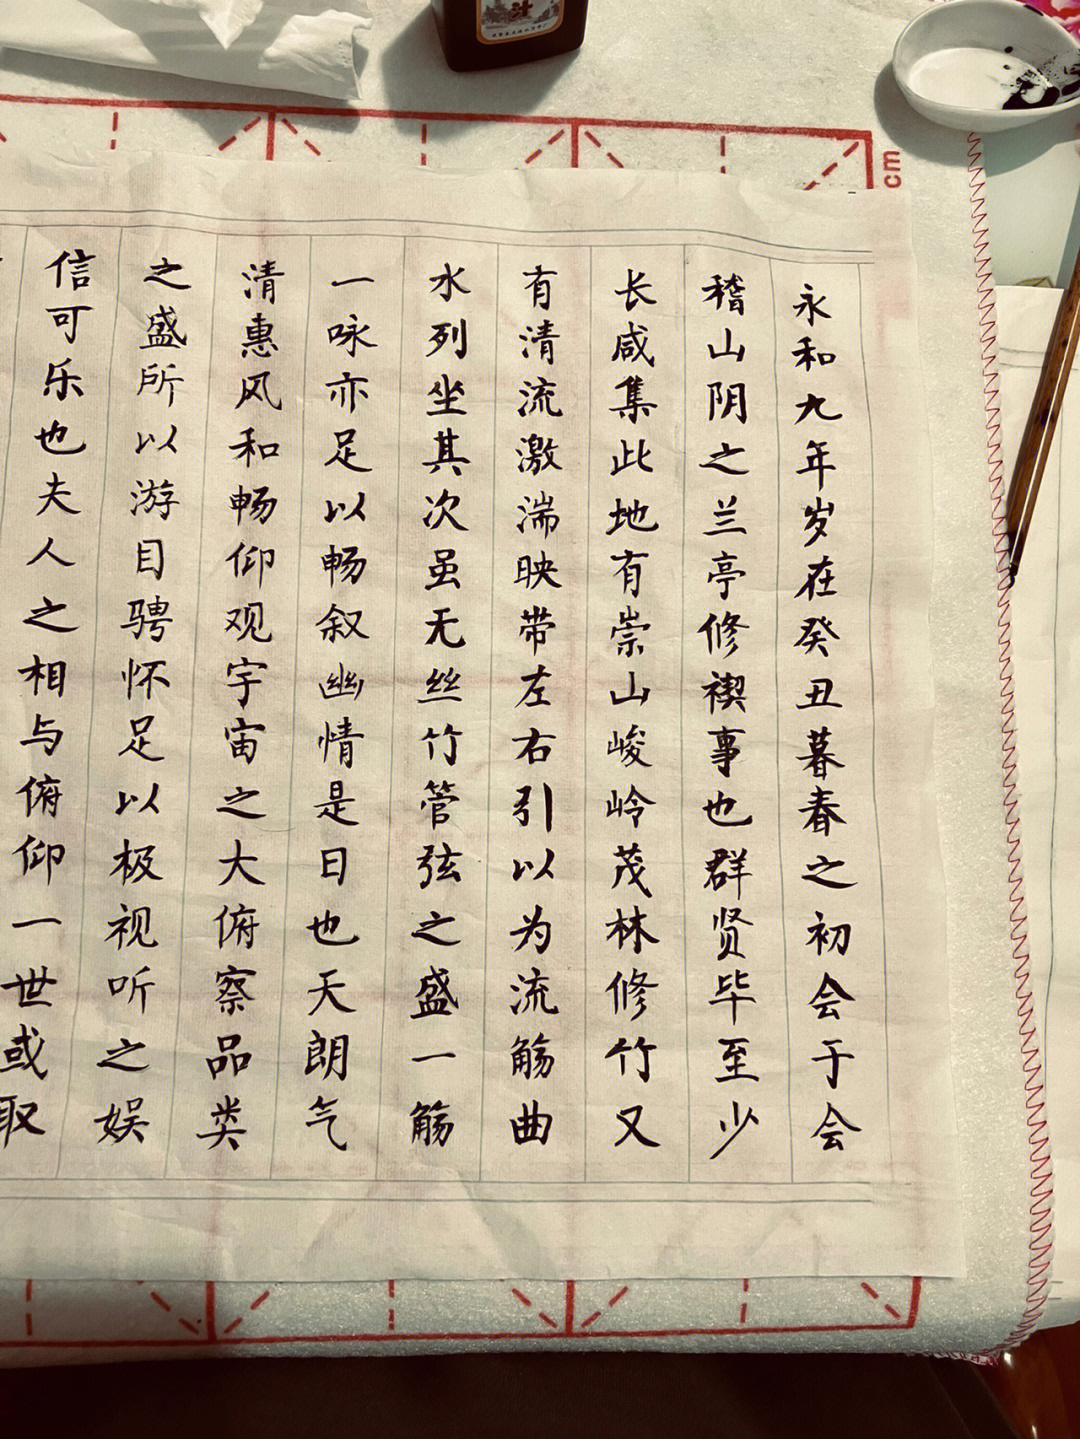 永和九年岁在癸丑暮春之初会于会
稽山阴之兰亭修禊事也群贤毕至少
长咸集此地有崇山峻岭茂林修竹又
有清流激湍映带左右引以为流觞曲
水列坐其次虽无丝竹管弦之盛一觞
一咏亦足以畅叙幽情是日也天朗气
清惠风和畅仰观宇宙之大俯察品类
之盛所以游目骋怀足以极视听之娱
信可乐也夫人之相与俯仰一世或取
汁
cm